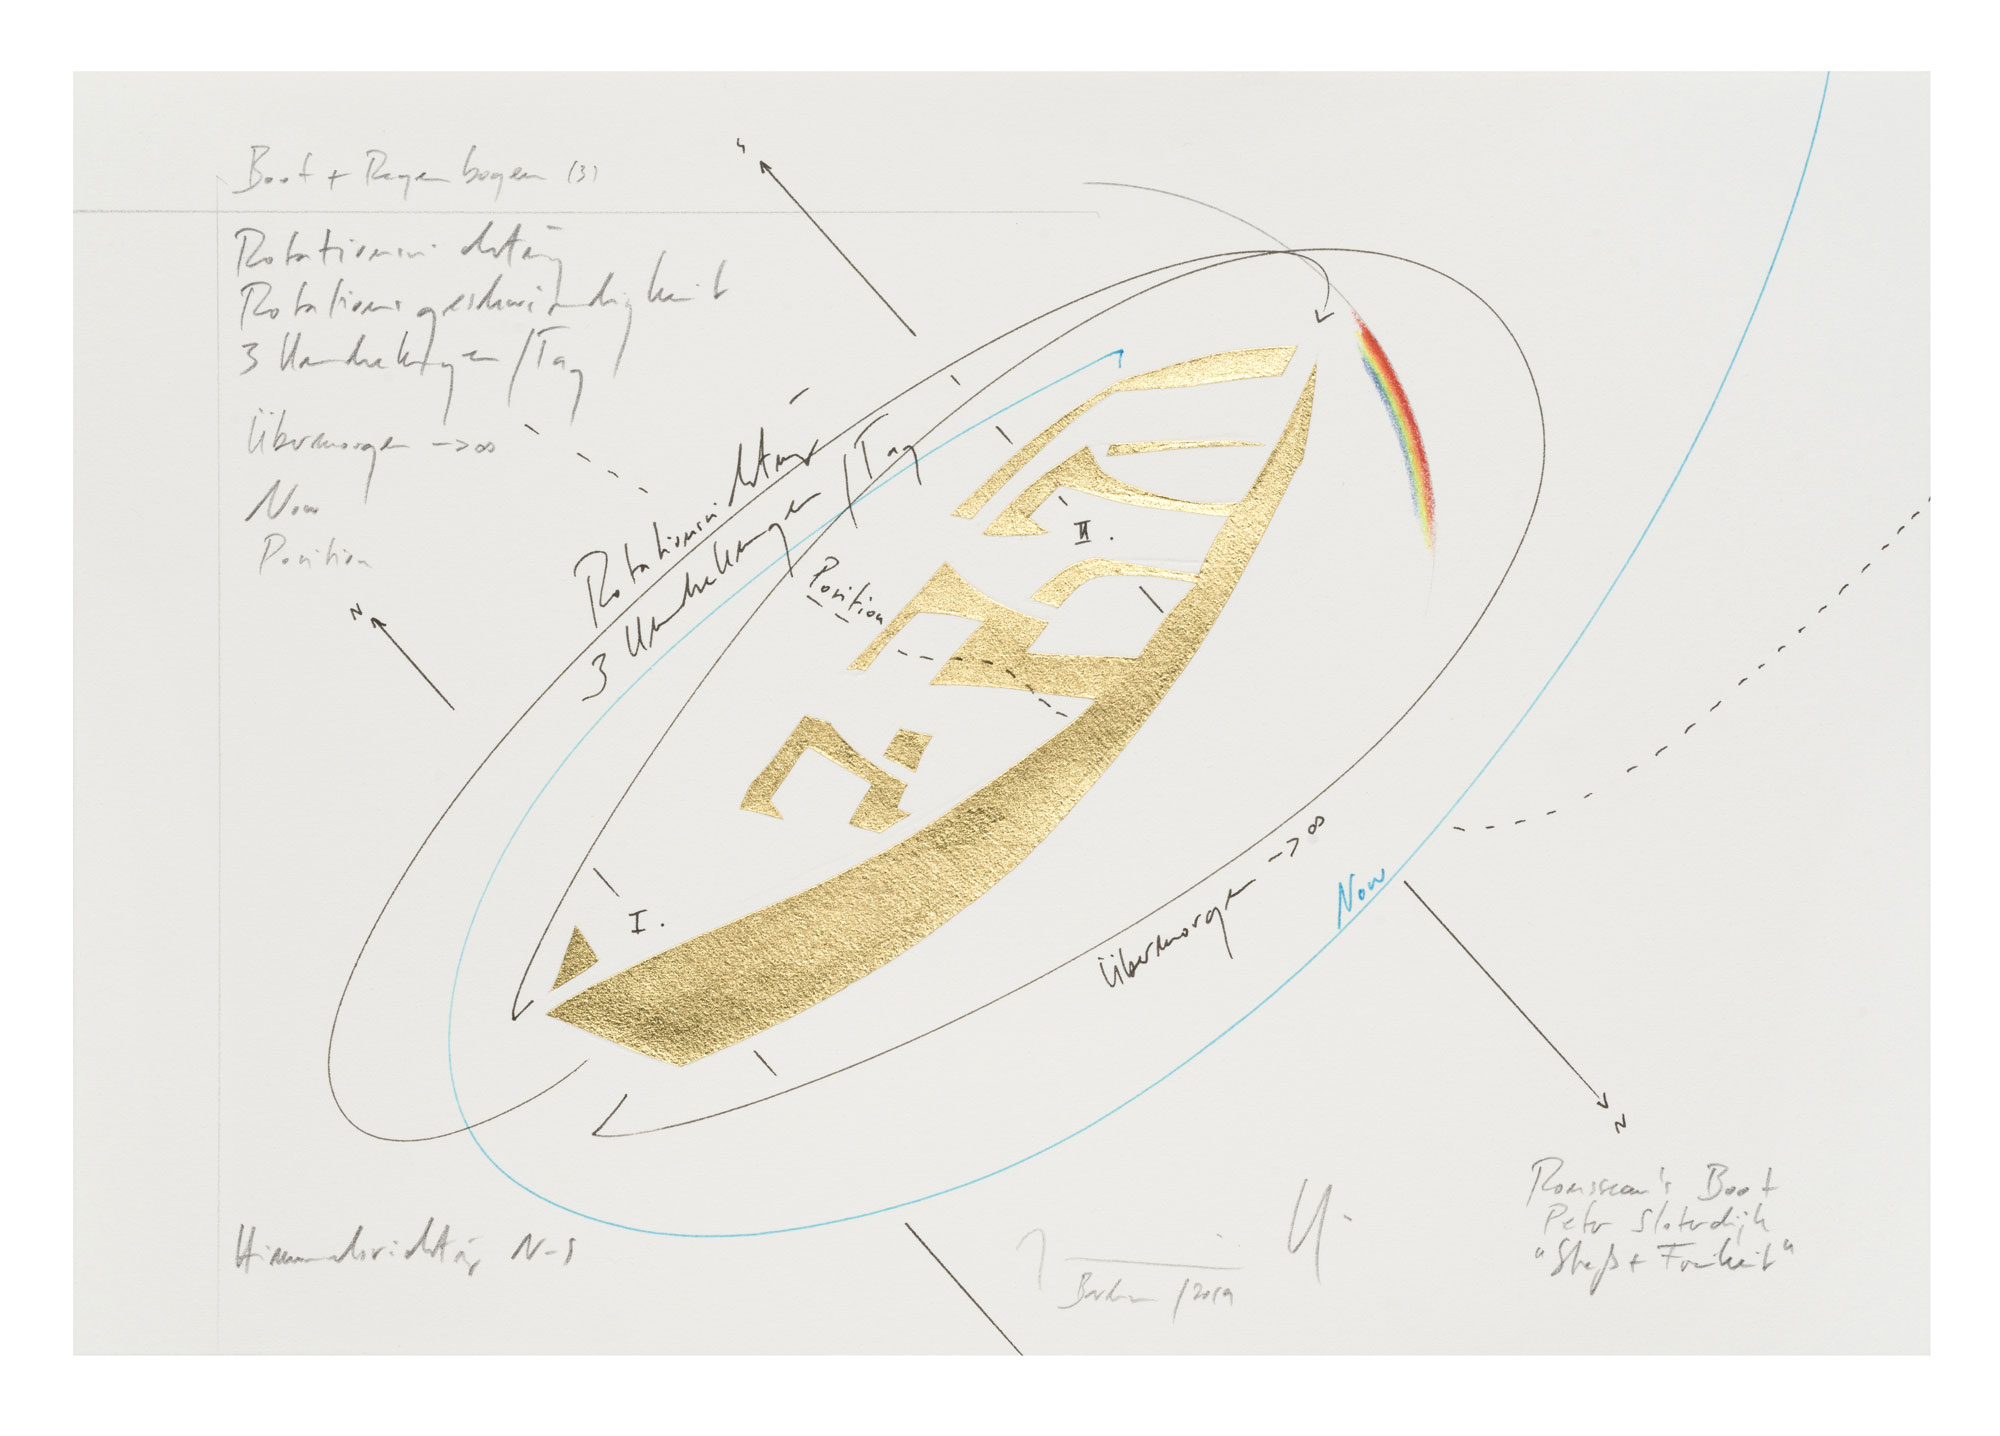 Boot + Regenbogen (3)
Rotationsrichtung
Rotationsgeschwindigkeit
3 Umdrehungen/Tag
Übermorgen -> ∞
Now
Position
S
N
Rotationsrichtung
3 Umdrehungen/Tag
Position
II.
I.
Übermorgen -> ∞
Now
N
Himmelsrichtung N-S
Berlin /2019
Rousseau's Boot
Peter Sloterdijk
"Streß + Freiheit"